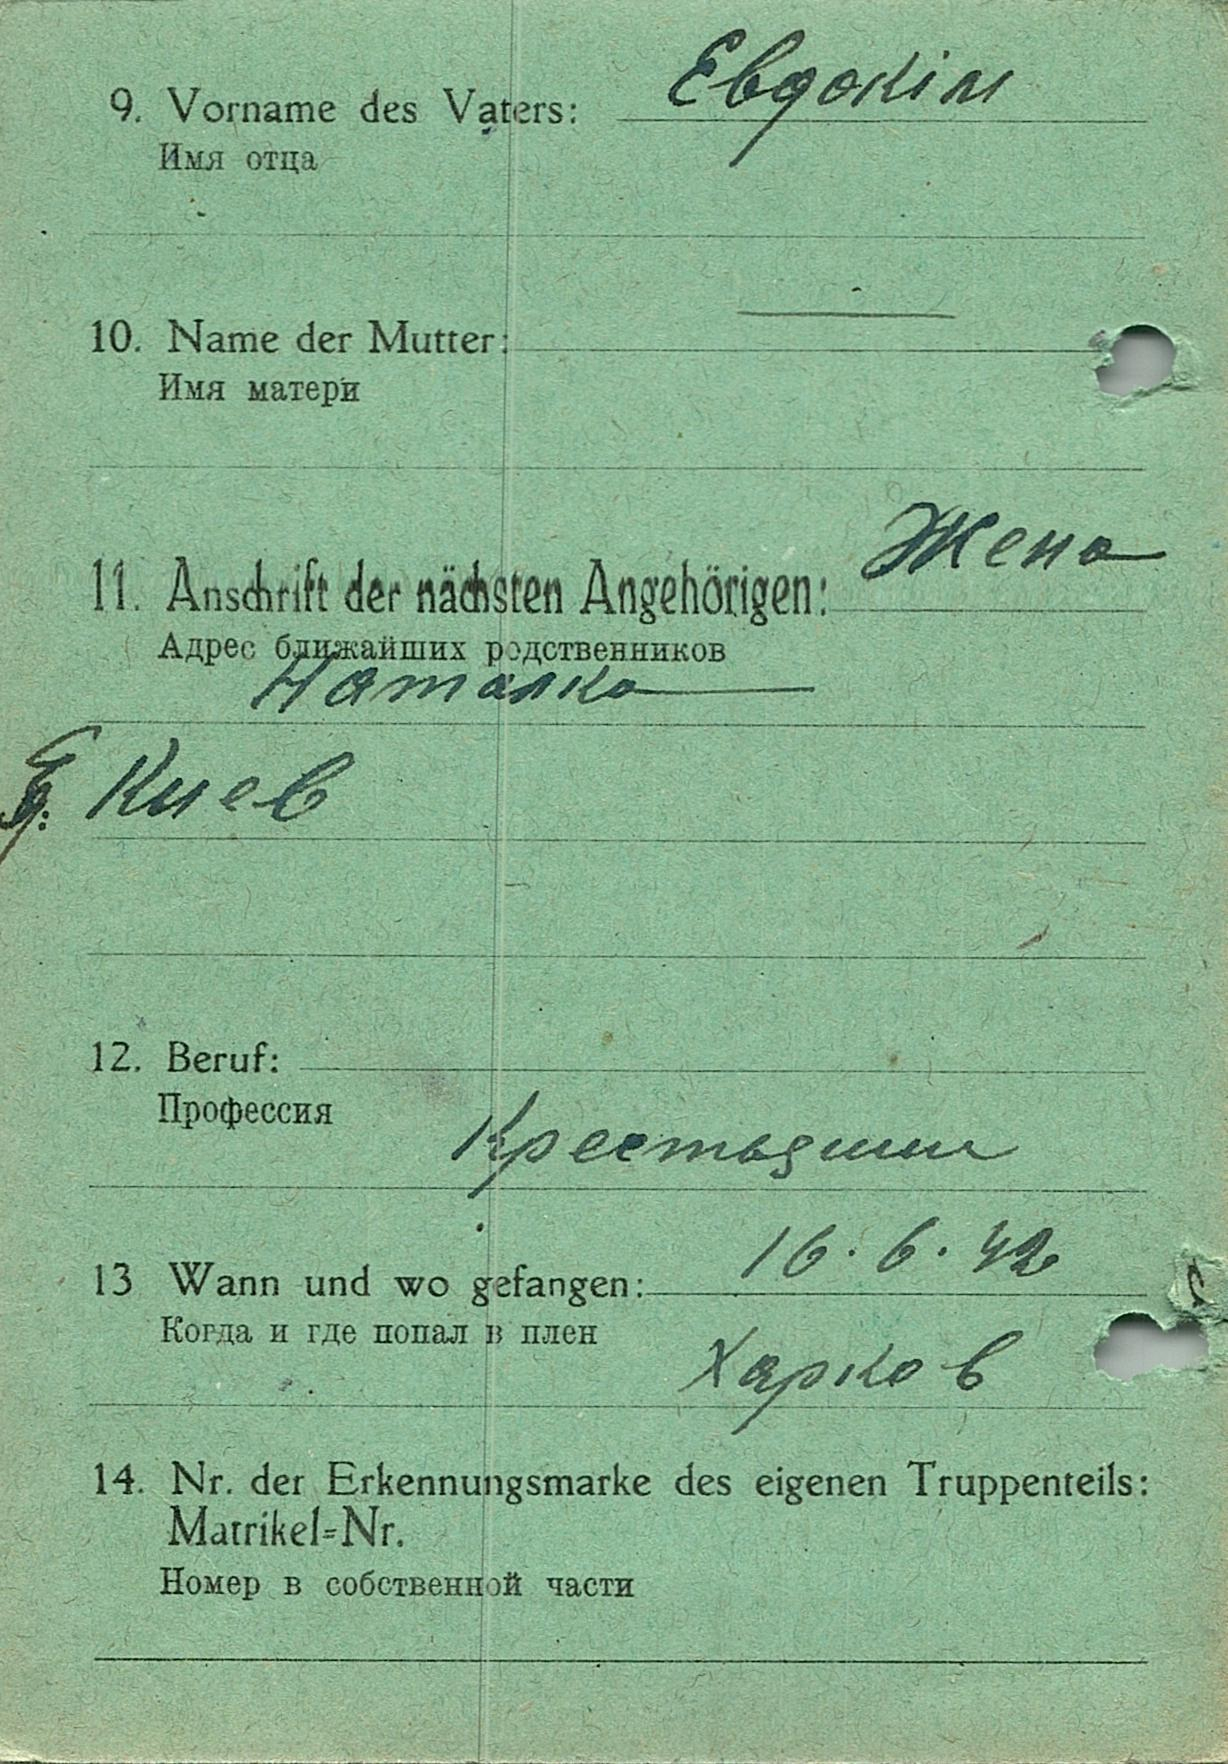 9. Vorname des Vaters: Евдокім
Имя отца
10. Name der Mutter: —
Имя матери
11. Anschrift der nächsten Angehörigen: Жена
Адрес ближайших родственников
Наталка
г. Киев
12. Beruf:
Профессия
Крестьянин
13 Wann und wo gefangen: 16.6.42
Когда и где попал в плен
Харков
14. Nr. der Erkennungsmarke des eigenen Truppenteils:
Matrikel=Nr.
Номер в собственной части